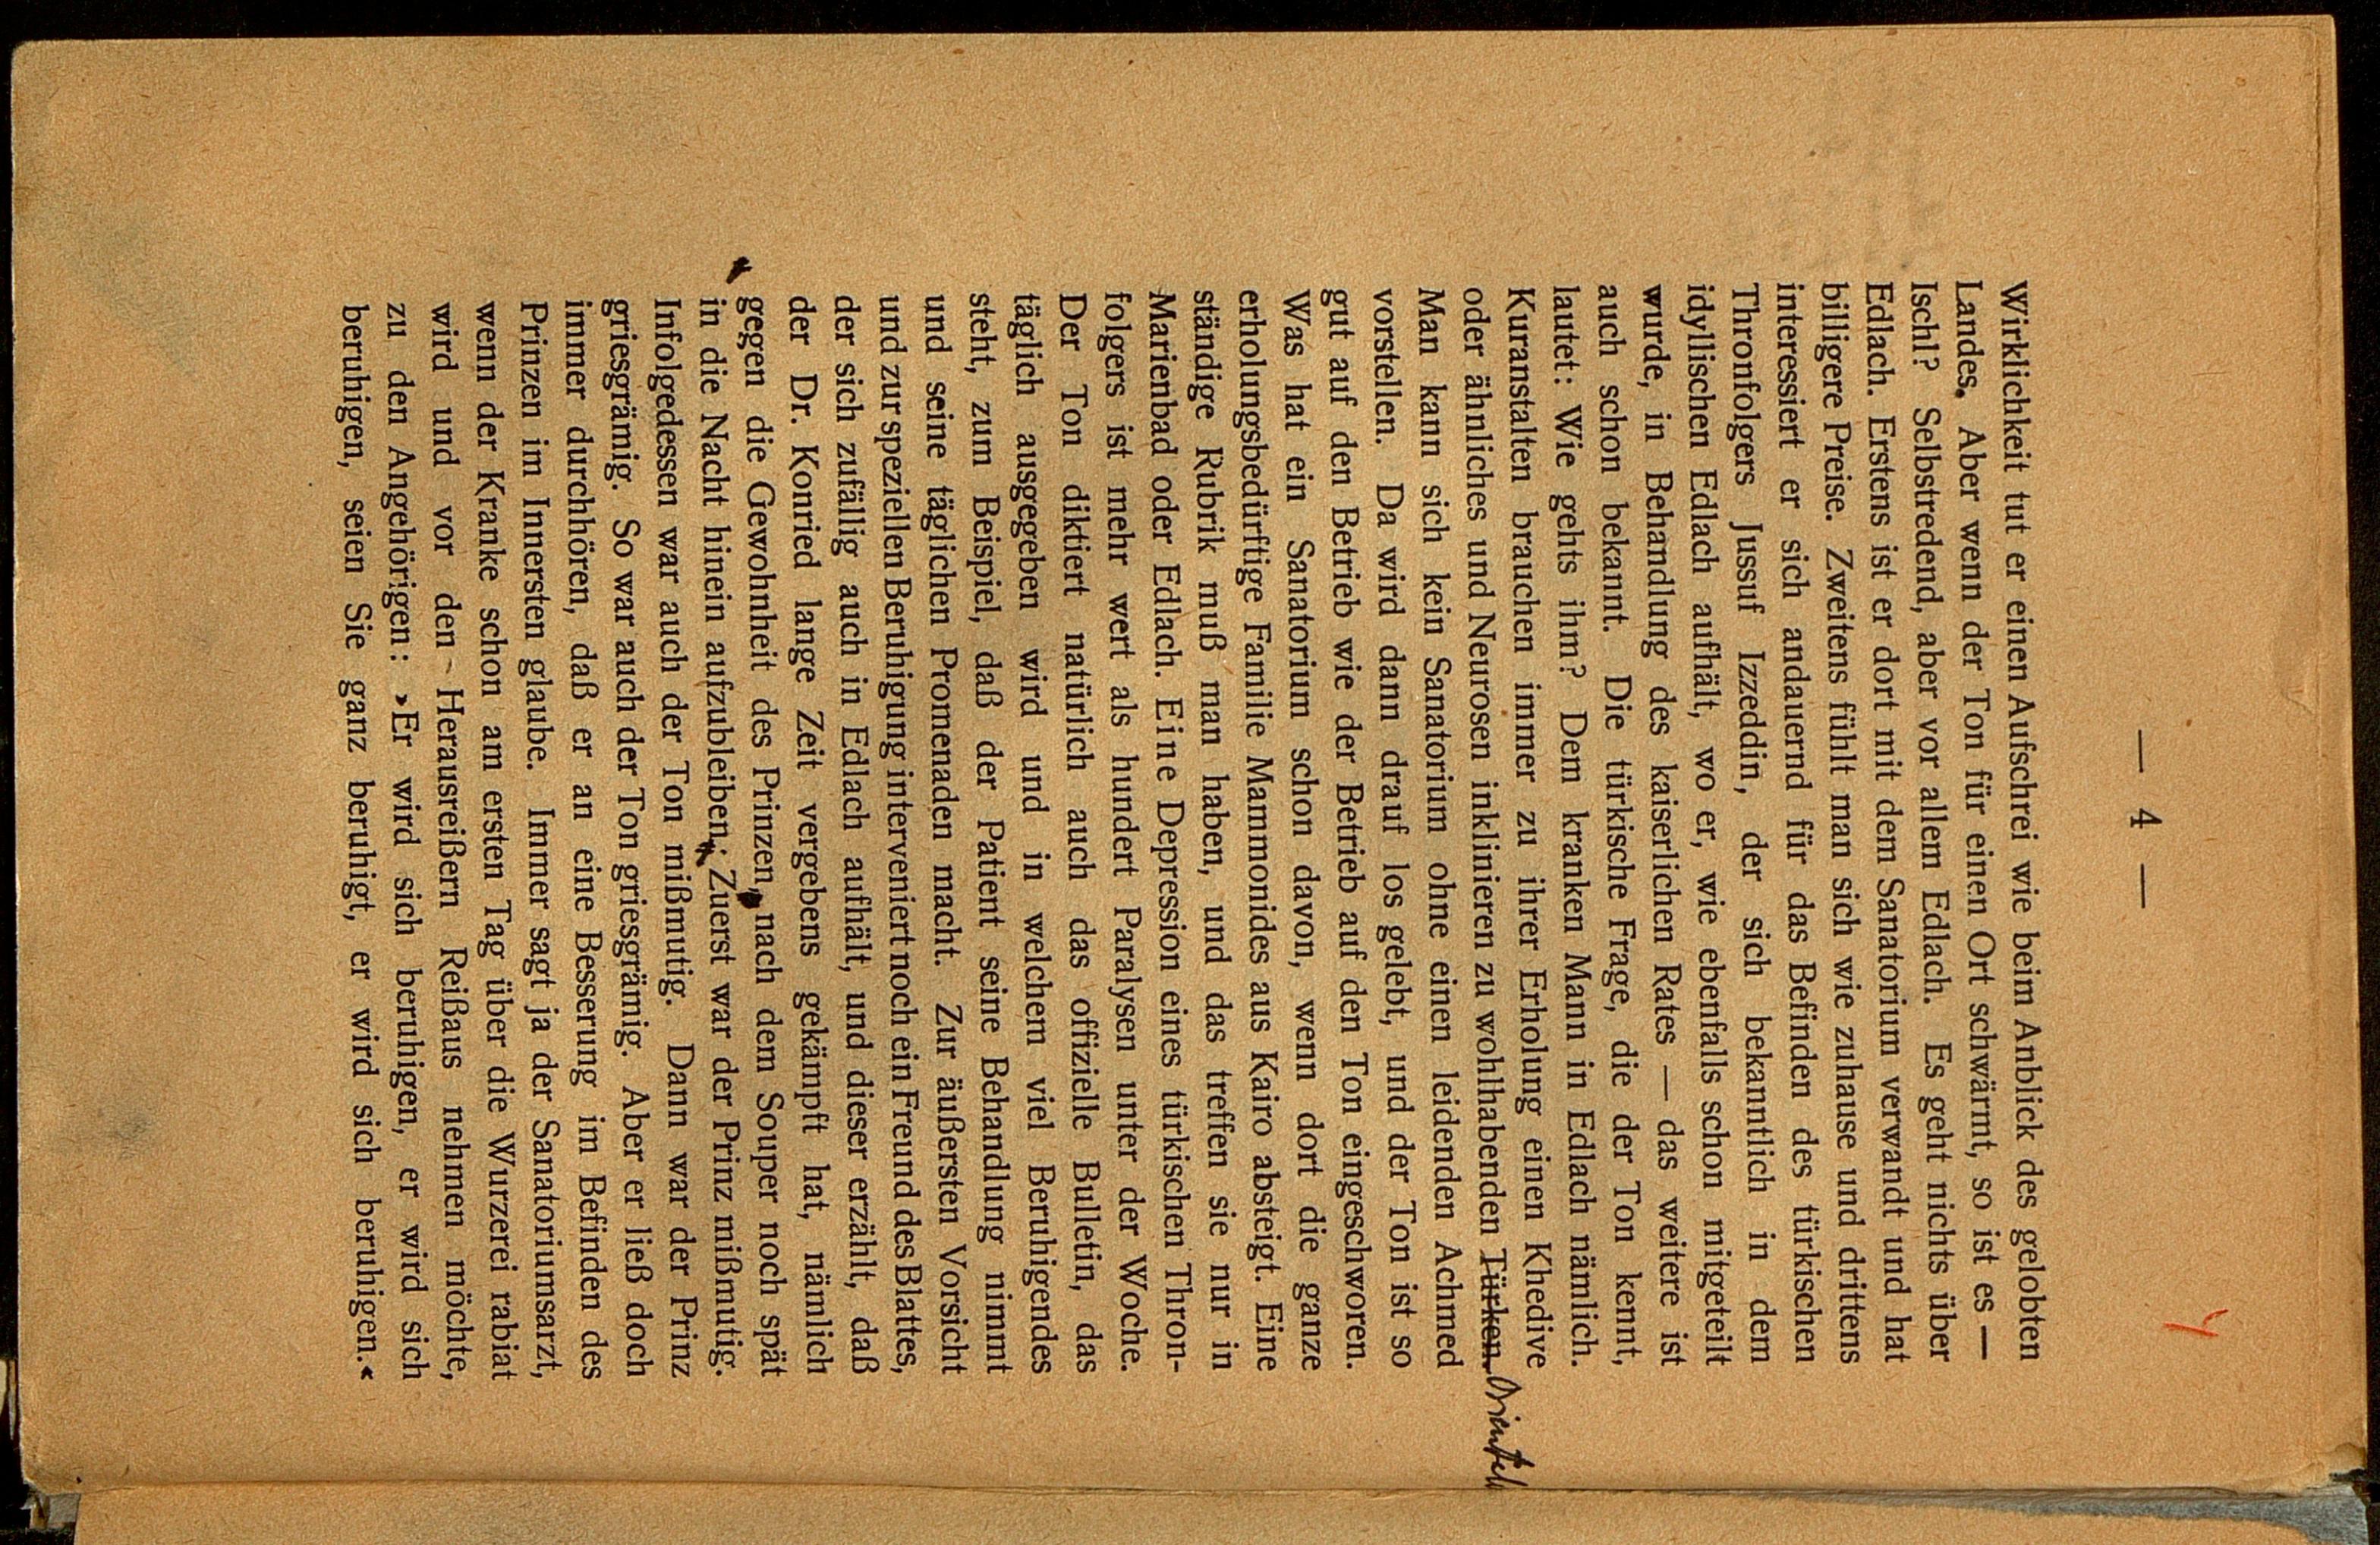 — 4 —
Wirklichkeit tut er einen Aufschrei wie beim Anblick des gelobten
Landes. Aber wenn der Ton für einen Ort schwärmt, so ist es —
Ischl? Selbstredend, aber vor allem Edlach. Es geht nichts über
Edlach. Erstens ist er dort mit dem Sanatorium verwandt und hat
billigere Preise. Zweitens fühlt man sich wie zuhause und drittens
interessiert er sich andauernd für das Befinden des türkischen
Thronfolgers Jussuf Izzeddin, der sich bekanntlich in dem
idyllischen Edlach aufhält, wo er, wie ebenfalls schon mitgeteilt
wurde, in Behandlung des kaiserlichen Rates — das weitere ist
auch schon bekannt. Die türkische Frage, die der Ton kennt,
lautet: Wie gehts ihm? Dem kranken Mann in Edlach nämlich.
Kuranstalten brauchen immer zu ihrer Erholung einen Khedive
oder ähnliches und Neurosen inklinieren zu wohlhabenden Türken.
Man kann sich kein Sanatorium ohne einen leidenden Achmed
vorstellen. Da wird dann drauf los gelebt, und der Ton ist so
gut auf den Betrieb wie der Betrieb auf den Ton eingeschworen.
Was hat ein Sanatorium schon davon, wenn dort die ganze
erholungsbedürftige Familie Mammonides aus Kairo absteigt. Eine
ständige Rubrik muß man haben, und das treffen sie nur in
Marienbad oder Edlach. Eine Depression eines türkischen Thron-
folgers ist mehr wert als hundert Paralysen unter der Woche.
Der Ton diktiert natürlich auch das offizielle Bulletin, das
täglich ausgegeben wird und in welchem viel Beruhigendes
steht, zum Beispiel, daß der Patient seine Behandlung nimmt
und seine täglichen Promenaden macht. Zur äußersten Vorsicht
und zur speziellen Beruhigung interveniert noch ein Freund des Blattes,
der sich zufällig auch in Edlach aufhält, und dieser erzählt, daß
der Dr. Konried lange Zeit vergebens gekämpft hat, nämlich
gegen die Gewohnheit des Prinzen, nach dem Souper noch spät
in die Nacht hinein aufzubleiben. Zuerst war der Prinz mißmutig.
Infolgedessen war auch der Ton mißmutig. Dann war der Prinz
griesgrämig. So war auch der Ton griesgrämig. Aber er ließ doch
immer durchhören, daß er an eine Besserung im Befinden des
Prinzen im Innersten glaube. Immer sagt ja der Sanatoriumsarzt,
wenn der Kranke schon am ersten Tag über die Wurzerei rabiat
wird und vor den Herausreißern Reißaus nehmen möchte,
zu den Angehörigen: »Er wird sich beruhigen, er wird sich
beruhigen, seien Sie ganz beruhigt, er wird sich beruhigen.«